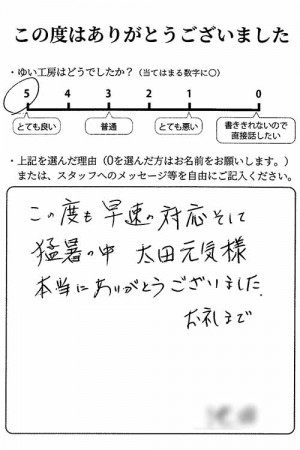 この度はありがとうございました
・ゆい工房はどうでしたか？（当てはまる数字に○）
5 4 3 2 1 0
とても良い 普通 とても悪い 書ききれないので直接話したい
・上記を選んだ理由（0を選んだ方はお名前をお願いします。）
または、スタッフへのメッセージ等を自由にご記入ください。
この度も早速の対応そして
猛暑の中 太田元気様
本当にありがとうございました。
お礼まで